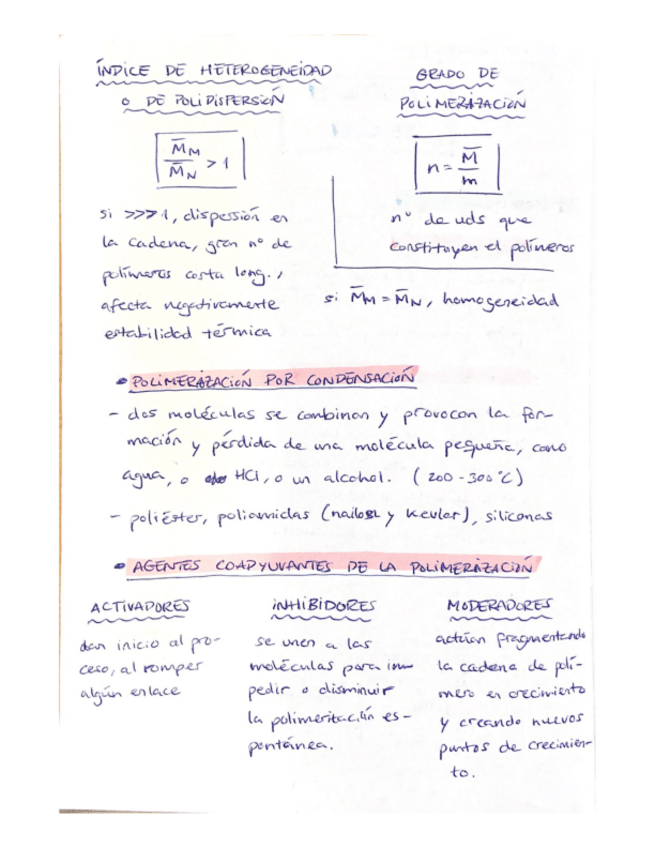 ÍNDICE DE HETEROGENEIDAD
O DE POLIDISPERSIÓN
M̄M / M̄N > 1
si >>> 1, dispersión en
la cadena, gran nº de
polímeros corta long.,
afecta negativamente
estabilidad térmica
GRADO DE
POLIMERIZACIÓN
n = M̄ / m
nº de uds que
constituyen el polímeros
si M̄M = M̄N, homogeneidad
• POLIMERIZACIÓN POR CONDENSACIÓN
- dos moléculas se combinan y provocan la for-
mación y pérdida de una molécula pequeña, como
agua, o HCl, o un alcohol. (200-300ºC)
- poliéster, poliamidas (nailon y kevlar), siliconas
• AGENTES COADYUVANTES DE LA POLIMERIZACIÓN
ACTIVADORES
dan inicio al pro-
ceso, al romper
algún enlace
INHIBIDORES
se unen a las
moléculas para im
pedir o disminuir
la polimerización es-
pontánea.
MODERADORES
actúan fragmentando
la cadena de polí-
mero en crecimiento
y creando nuevos
puntos de crecimien-
to.